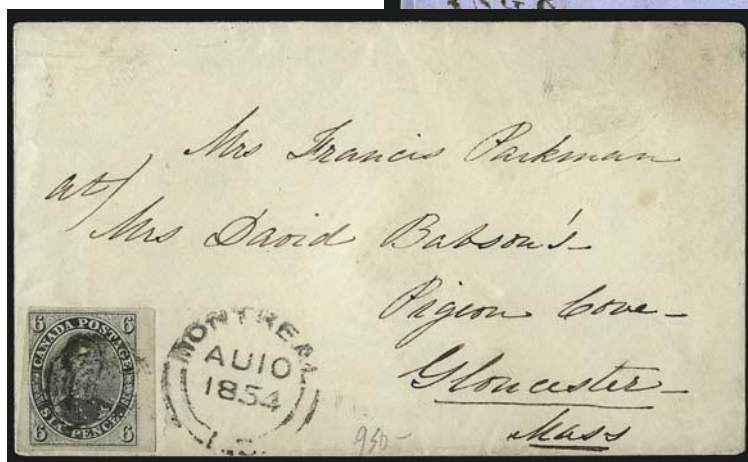 Mrs Francis Parkman
at/
Mrs David Babson's
Pigeon Cove
Gloucester
Mass
6 CANADA POSTAGE 6
6 SIX PENCE. 6
MONTREAL
AU 10
1854
L.C.
950-